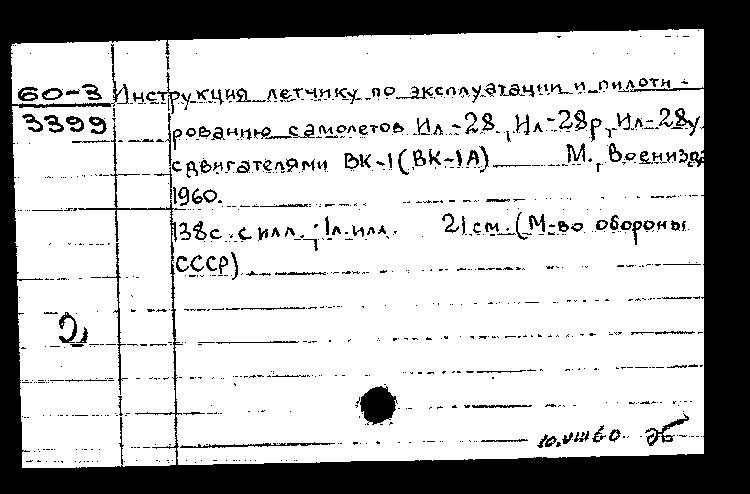 60-3 Инструкция летчику по эксплуатации и пилоти-
3399
рованию самолетов Ил-28, Ил-28р, Ил-28у
с двигателями ВК-1 (ВК-1А) М., Воениздат
1960.
138 с. с илл.; 1 л. илл. 21 см. (М-во обороны
СССР)
10.VIII 60